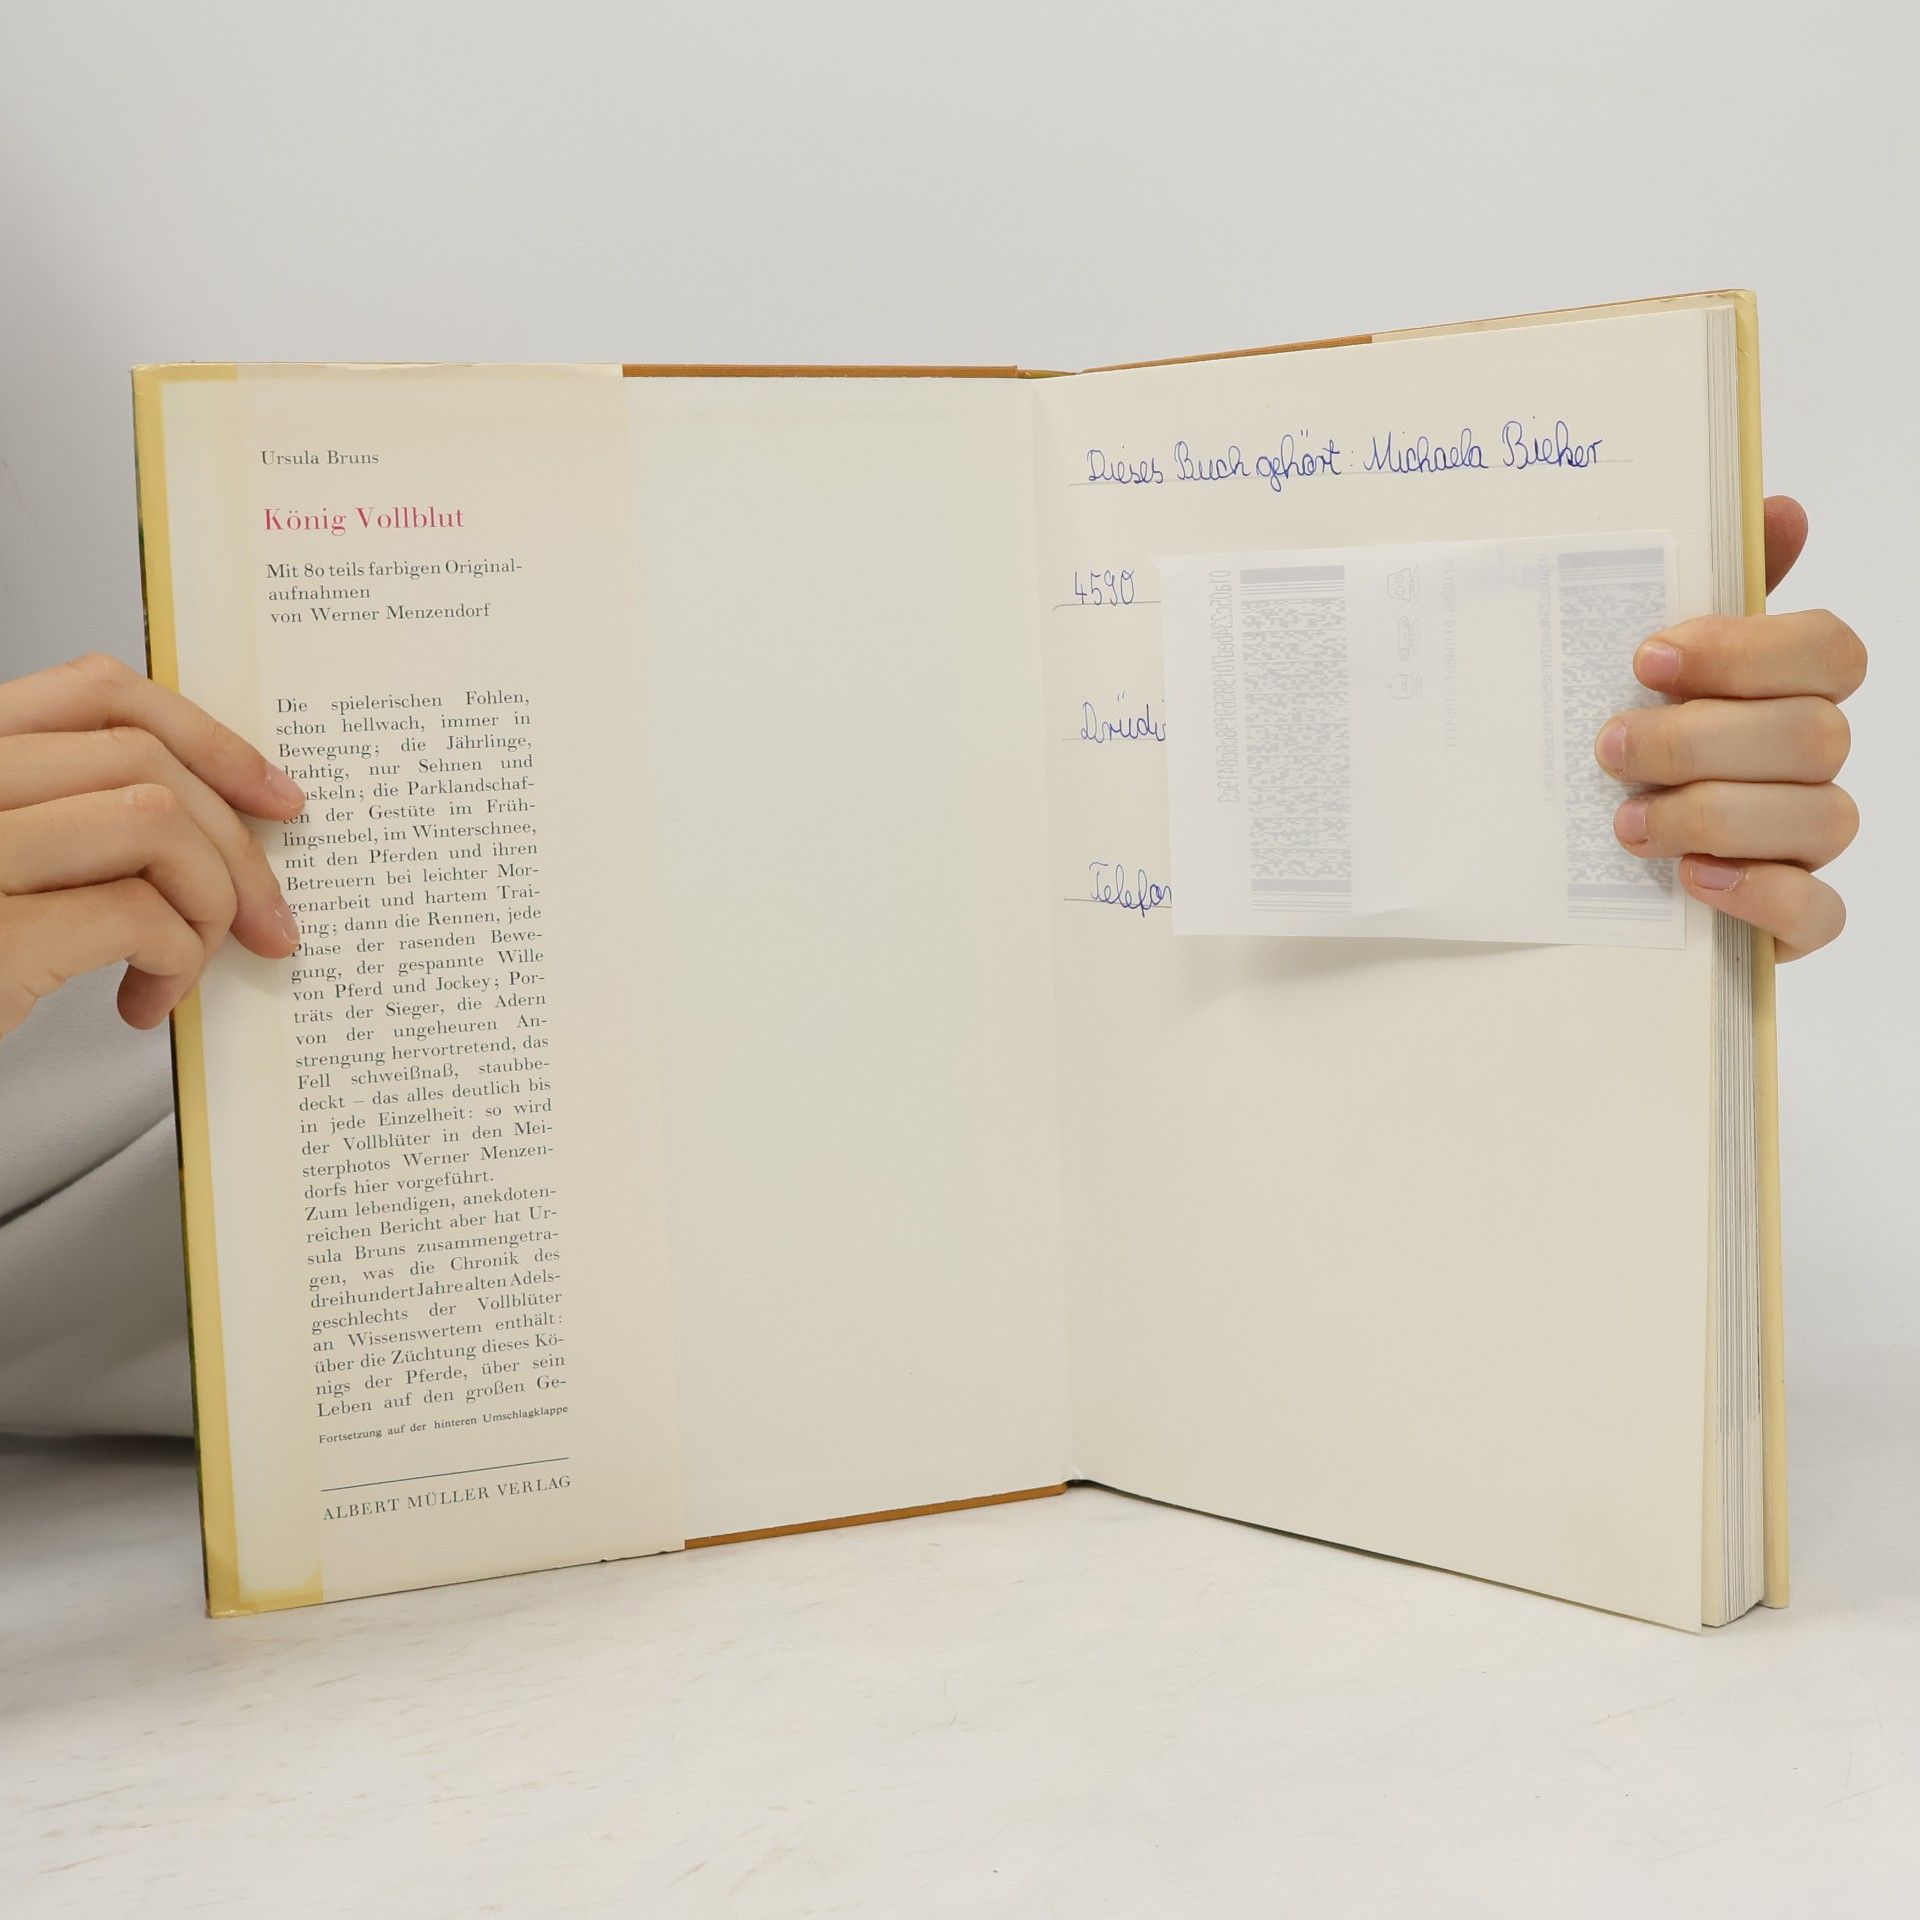 Ursula Bruns
König Vollblut
Mit 80 teils farbigen Original-
aufnahmen
von Werner Menzendorf
Die spielerischen Fohlen,
schon hellwach, immer in
Bewegung; die Jährlinge,
drahtig, nur Sehnen und
uskeln; die Parklandschaf-
ten der Gestüte im Früh-
lingsnebel, im Winterschnee,
mit den Pferden und ihren
Betreuern bei leichter Mor-
genarbeit und hartem Trai-
ing; dann die Rennen, jede
Phase der rasenden Bewe-
gung, der gespannte Wille
von Pferd und Jockey; Por-
träts der Sieger, die Adern
von der ungeheuren An-
strengung hervortretend, das
Fell schweißnaß, staubbe-
deckt – das alles deutlich bis
in jede Einzelheit: so wird
der Vollblüter in den Mei-
sterphotos Werner Menzen-
dorfs hier vorgeführt.
Zum lebendigen, anekdoten-
reichen Bericht aber hat Ur-
sula Bruns zusammengetra-
gen, was die Chronik des
dreihundert Jahre alten Adels-
geschlechts der Vollblüter
an Wissenswertem enthält:
über die Züchtung dieses Kö-
nigs der Pferde, über sein
Leben auf den großen Ge-
Fortsetzung auf der hinteren Umschlagklappe
ALBERT MÜLLER VERLAG
Dieses Buch gehört: Michaela Bieker
4590
Drüdi
Telefon